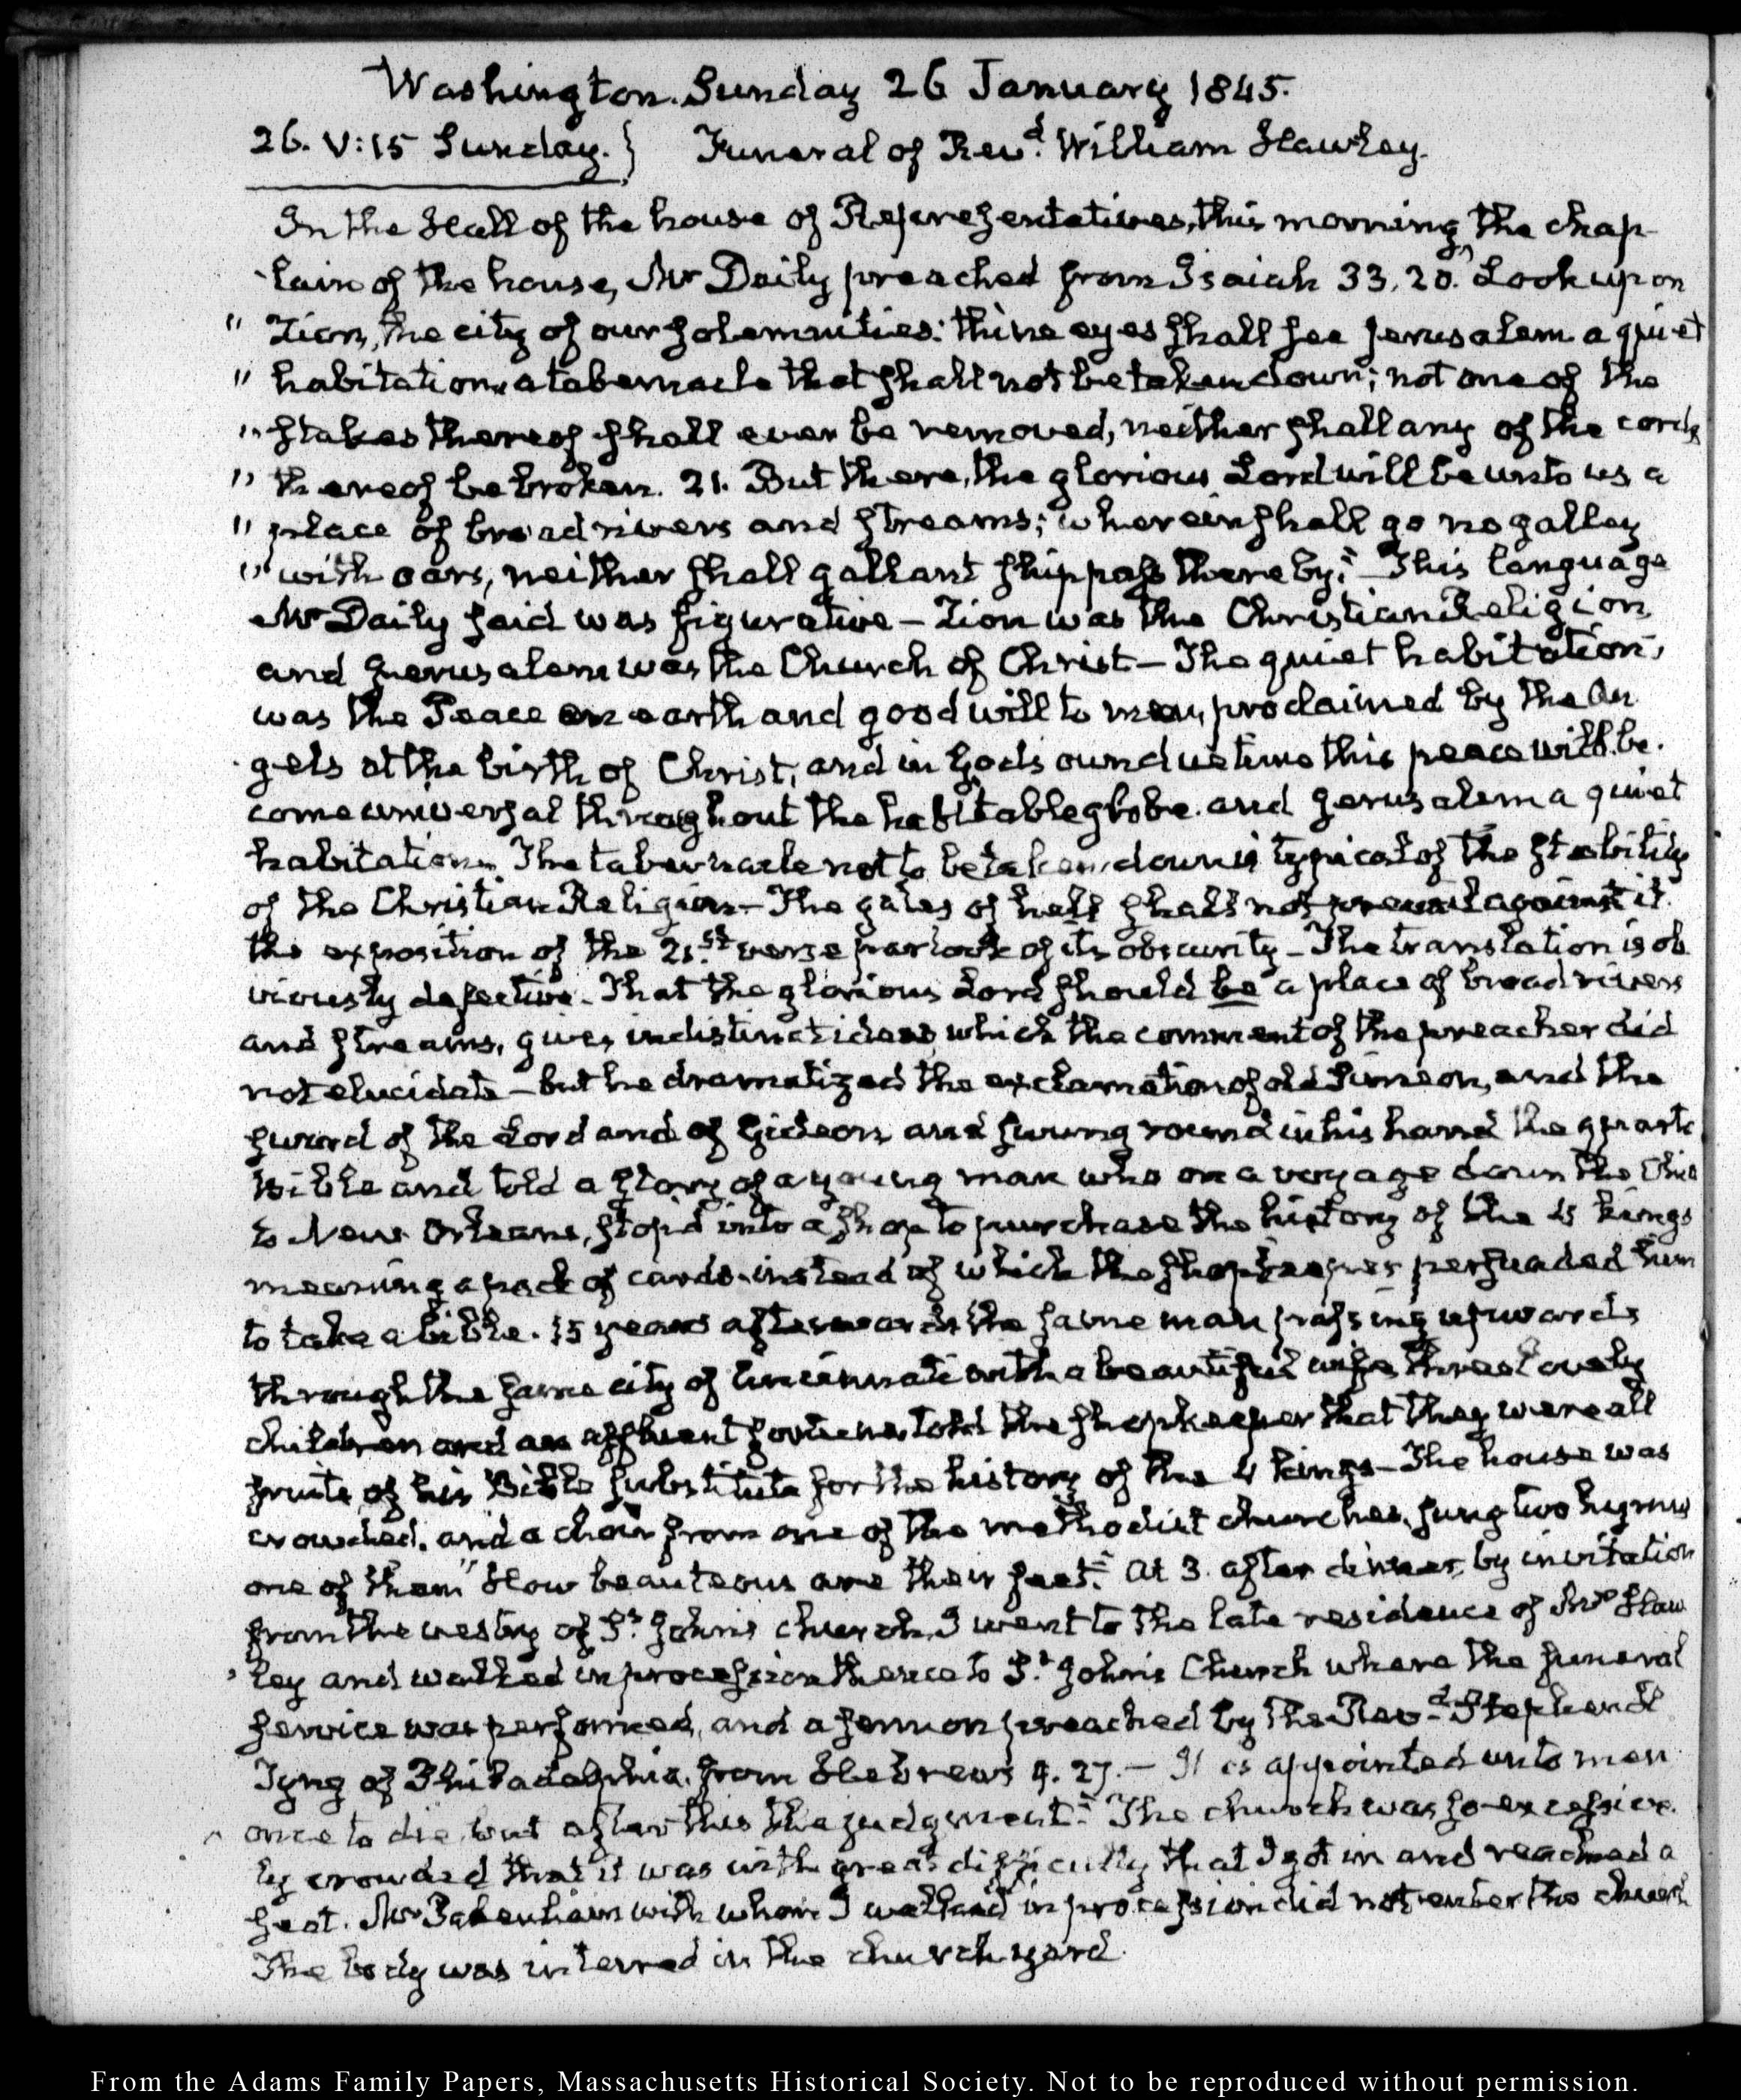 Washington. Sunday 26 January 1845.
26. V:15 Sunday. } Funeral of Revd. William Hawley.
In the Hall of the house of Representatives, this morning, the chap-
lain of the house, Mr Daily preached from Isaiah 33.20. Look upon
" Zion, the city of our solemnities: thine eyes shall see Jerusalem a quiet
" habitation, a tabernacle that shall not be taken down; not one of the
" stakes thereof shall ever be removed, neither shall any of the cords
" thereof be broken. 21. But there, the glorious Lord will be unto us a
" place of broad rivers and streams; wherein shall go no galley
" with oars, neither shall gallant ship pass thereby." This language
Mr Daily said was figurative — Zion was the Christian Religion,
and Jerusalem was the Church of Christ — The quiet habitation,
was the Peace on earth and good will to men, proclaimed by the An
gels at the birth of Christ, and in Gods own due time this peace will be-
come universal throughout the habitable globe. and Jerusalem a quiet
habitation. The tabernacle not to be taken down is typical of the stability
of the Christian Religion — The gates of hell shall not prevail against it.
the exposition of the 21.st verse partook of its obscurity — The translation is ob
viously defective. That the glorious Lord should be a place of broad rivers
and streams, gives indistinct ideas which the comment of the preacher did
not elucidate — but he dramatized the exclamation of old Simeon, and the
sword of the Lord and of Gideon and swung round in his hand the quarto
bible and told a story of a young man who on a voyage down the Ohio
to New Orleans, stop'd into a shop to purchase the history of the 4 kings
meaning a pack of cards. instead of which the shopkeeper persuaded him
to take a bible. 15 years afterwards the same man passing upwards
through the same city of Cincinnati with a beautiful wife three lovely
children and an affluent fortune, told the shopkeeper that they were all
fruits of his Bible substitute for the history of the 4 kings — The house was
crowded. and a choir from one of the methodist churches, sung two hymns
one of them "How beauteous are their feet." At 3. after dinner, by invitation
from the vestry of St. John's church, I went to the late residence of Mr Haw
ley and walked in procession thence to St. John's Church where the funeral
service was performed, and a sermon preached by the Revd. Stephen
Tyng of Philadelphia. from Hebrews 9. 27. — It is appointed unto men
once to die, but after this the judgment." The church was so excessive
ly crowded that it was with great difficulty that I got in and reached a
seat. Mr Pakenham with whom I walked in procession did not enter the church
The body was interred in the church yard.
From the Adams Family Papers, Massachusetts Historical Society. Not to be reproduced without permission.